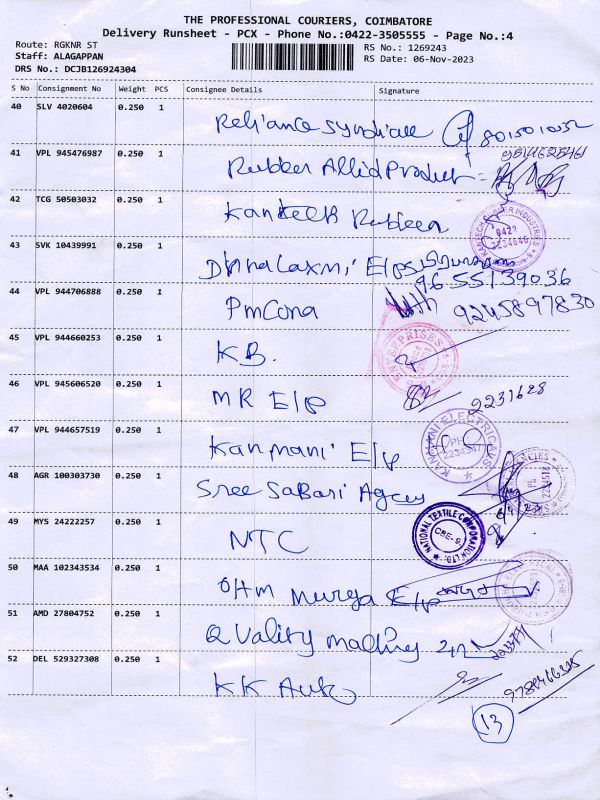 THE PROFESSIONAL COURIERS, COIMBATORE
Delivery Runsheet - PCX - Phone No.:0422-3505555 - Page No.:4
Route: RGKNR ST
RS No.: 1269243
Staff: ALAGAPPAN
RS Date: 06-Nov-2023
DRS No.: DCJB126924304
S No Consignment No Weight PCS Consignee Details Signature
40 SLV 4020604 0.250 1 Reliance Syndicate
41 VPL 945476987 0.250 1 Rubber Allid Product
42 TCG 50503032 0.250 1
43 SVK 10439991 0.250 1 Dhnalaxmi E/ps 9655139036
44 VPL 944706888 0.250 1 9245897830
45 VPL 944660253 0.250 1 KB.
ENTERPRISES
46 VPL 945606520 0.250 1 MR E/p 2231628
47 VPL 944657519 0.250 1 Kanmani E/p
KANMANI ELECTRICALS
PH: 2234347
48 AGR 100303730 0.250 1 Sree Sabari Agcey
49 MYS 24222257 0.250 1 NTC
NATIONAL TEXTILE CORPORATION LTD.
CBE-9.
50 MAA 102343534 0.250 1 Ohm Muruga E/p
51 AMD 27804752 0.250 1 Quality
52 DEL 529327308 0.250 1 KK Auto
13